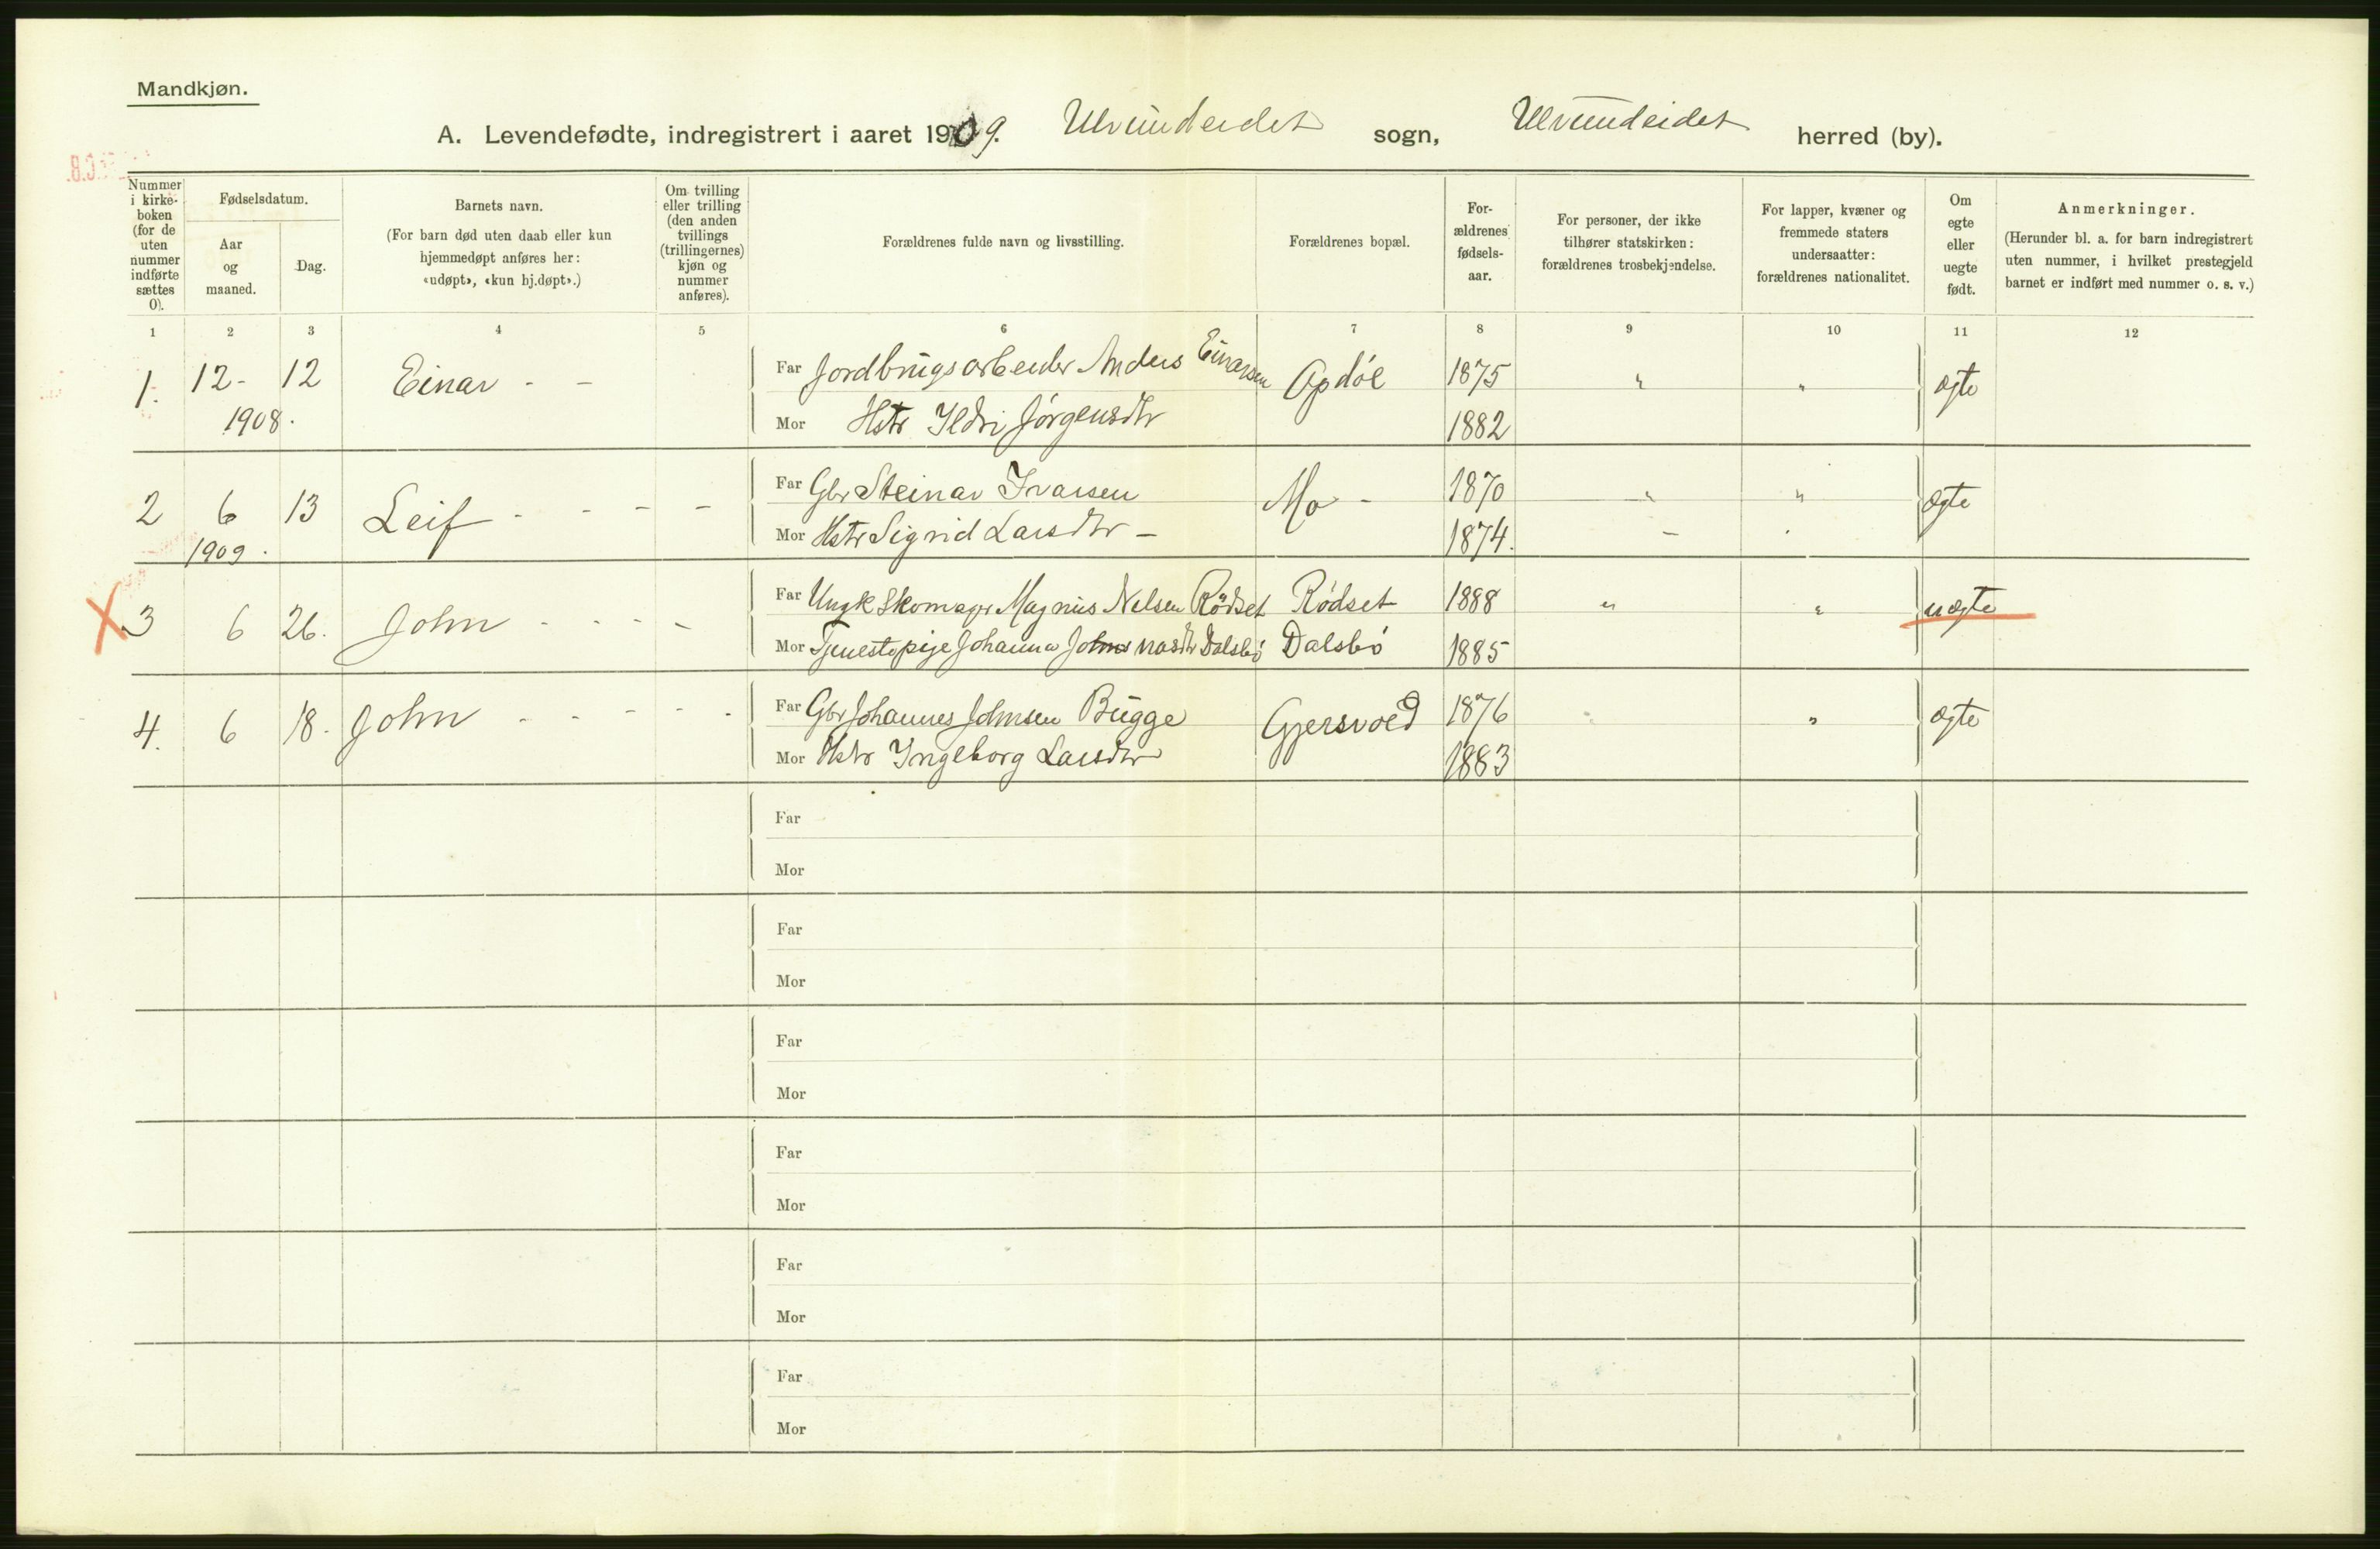 Mandkjøn.
A. Levendefødte, indregistrert i aaret 1909. Ulvundeidet sogn, Ulvundeidet herred (by).
Nummer i kirke-boken (for de uten nummer indførte sættes 0).
Fødselsdatum.
Aar og maaned.
Dag.
Barnets navn.
(For barn død uten daab eller kun hjemmedøpt anføres her: «udøpt», «kun bj.døpt».)
Om tvilling eller trilling (den anden tvillings (trillingernes) kjøn og nummer anføres).
Forældrenes fulde navn og livsstilling.
Forældrenes bopæl.
For-ældrenes fødsels-aar.
For personer, der ikke tilhører statskirken: forældrenes trosbekjendelse.
For lapper, kvæner og fremmede staters undersaatter: forældrenes nationalitet.
Om egte eller uegte født.
Anmerkninger.
(Herunder bl. a. for barn indregistrert uten nummer, i hvilket prestegjeld barnet er indført med nummer o. s. v.)
1 2 3 4 5 6 7 8 9 10 11 12
1. 12- 12 Einar - - Far Jordbrugsarbeider Anders Einarsen Opdøl 1875 " " ægte
1908. Mor Hstr Ildri Jørgensdtr 1882
2 6 13 Leif - - - - Far Gbr Steinar Ivarsen Mo - 1870 " " ægte
1909. Mor Hstr Sigrid Larsdtr - 1874. -
3 6 26. John - - - - Far Ungk Skomager Magnus Nelsen Rødset Rødset 1888 " " uægte
Mor Tjenestepige Johanna Johnsdtr Dalsbø Dalsbø 1885
4. 6 18. John - - - - - Far Gbr Johannes Johnsen Bugge Gjersvold 1876 " ægte
Mor Hstr Ingeborg Larsdtr 1883
Far
Mor
Far
Mor
Far
Mor
Far
Mor
Far
Mor
Far
Mor